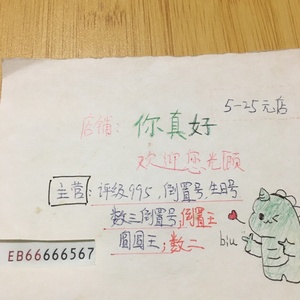 5-25元店
店铺：你真好
欢迎您光顾
主营：评级995，倒置号，生日号
数三倒置号；倒置王
圆圆王；数二
biu
EB66666567